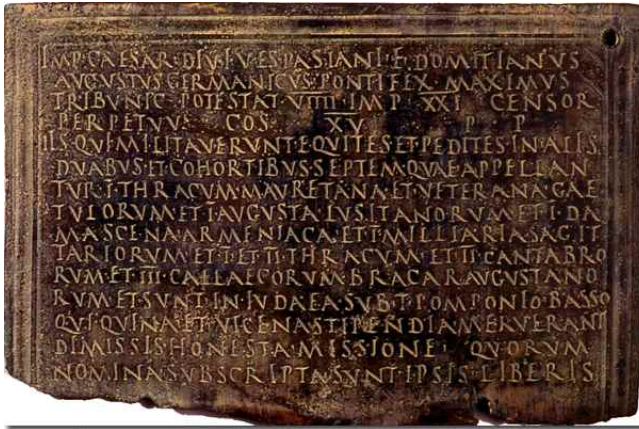 IMP·CAESAR·DIVI·VESPASIANI·F·DOMITIANVS
AVGVSTVS GERMANICVS·PONTIFEX·MAXIMVS
TRIBVNIC POTESTAT·VIIII·IMP·XXI CENSOR
PERPETVVS COS XV P P
IIS·QVI·MILITAVERVNT·EQVITES·ET·PEDITES·IN·ALIS
DVABVS·ET·COHORTIBVS·SEPTEM·QVAE·APPELLAN
TVR·I·THRACVM·MAVRETANA·ET·VETERANA·GAE
TVLORVM·ET·I·AVGVSTA·LVSITANORVM·ET·I·DA
MASCENA·ARMENIACA·ET·I·MILLIARIA·SAGIT
TARIORVM·ET·I·ET·II·THRACVM·ET·II·CANTABRO
RVM·ET·III·CALLAECORVM·BRACARAVGVSTANO
RVM·ET·SVNT·IN·IVDAEA·SVB·T·POMPONIO·BASSO
QVI·QVINA·ET·VICENA·STIPENDIA·MERVERANT
DIMISSIS·HONESTA·MISSIONE· QVORVM
NOMINA·SVBSCRIPTA·SVNT·IPSIS·LIBERIS